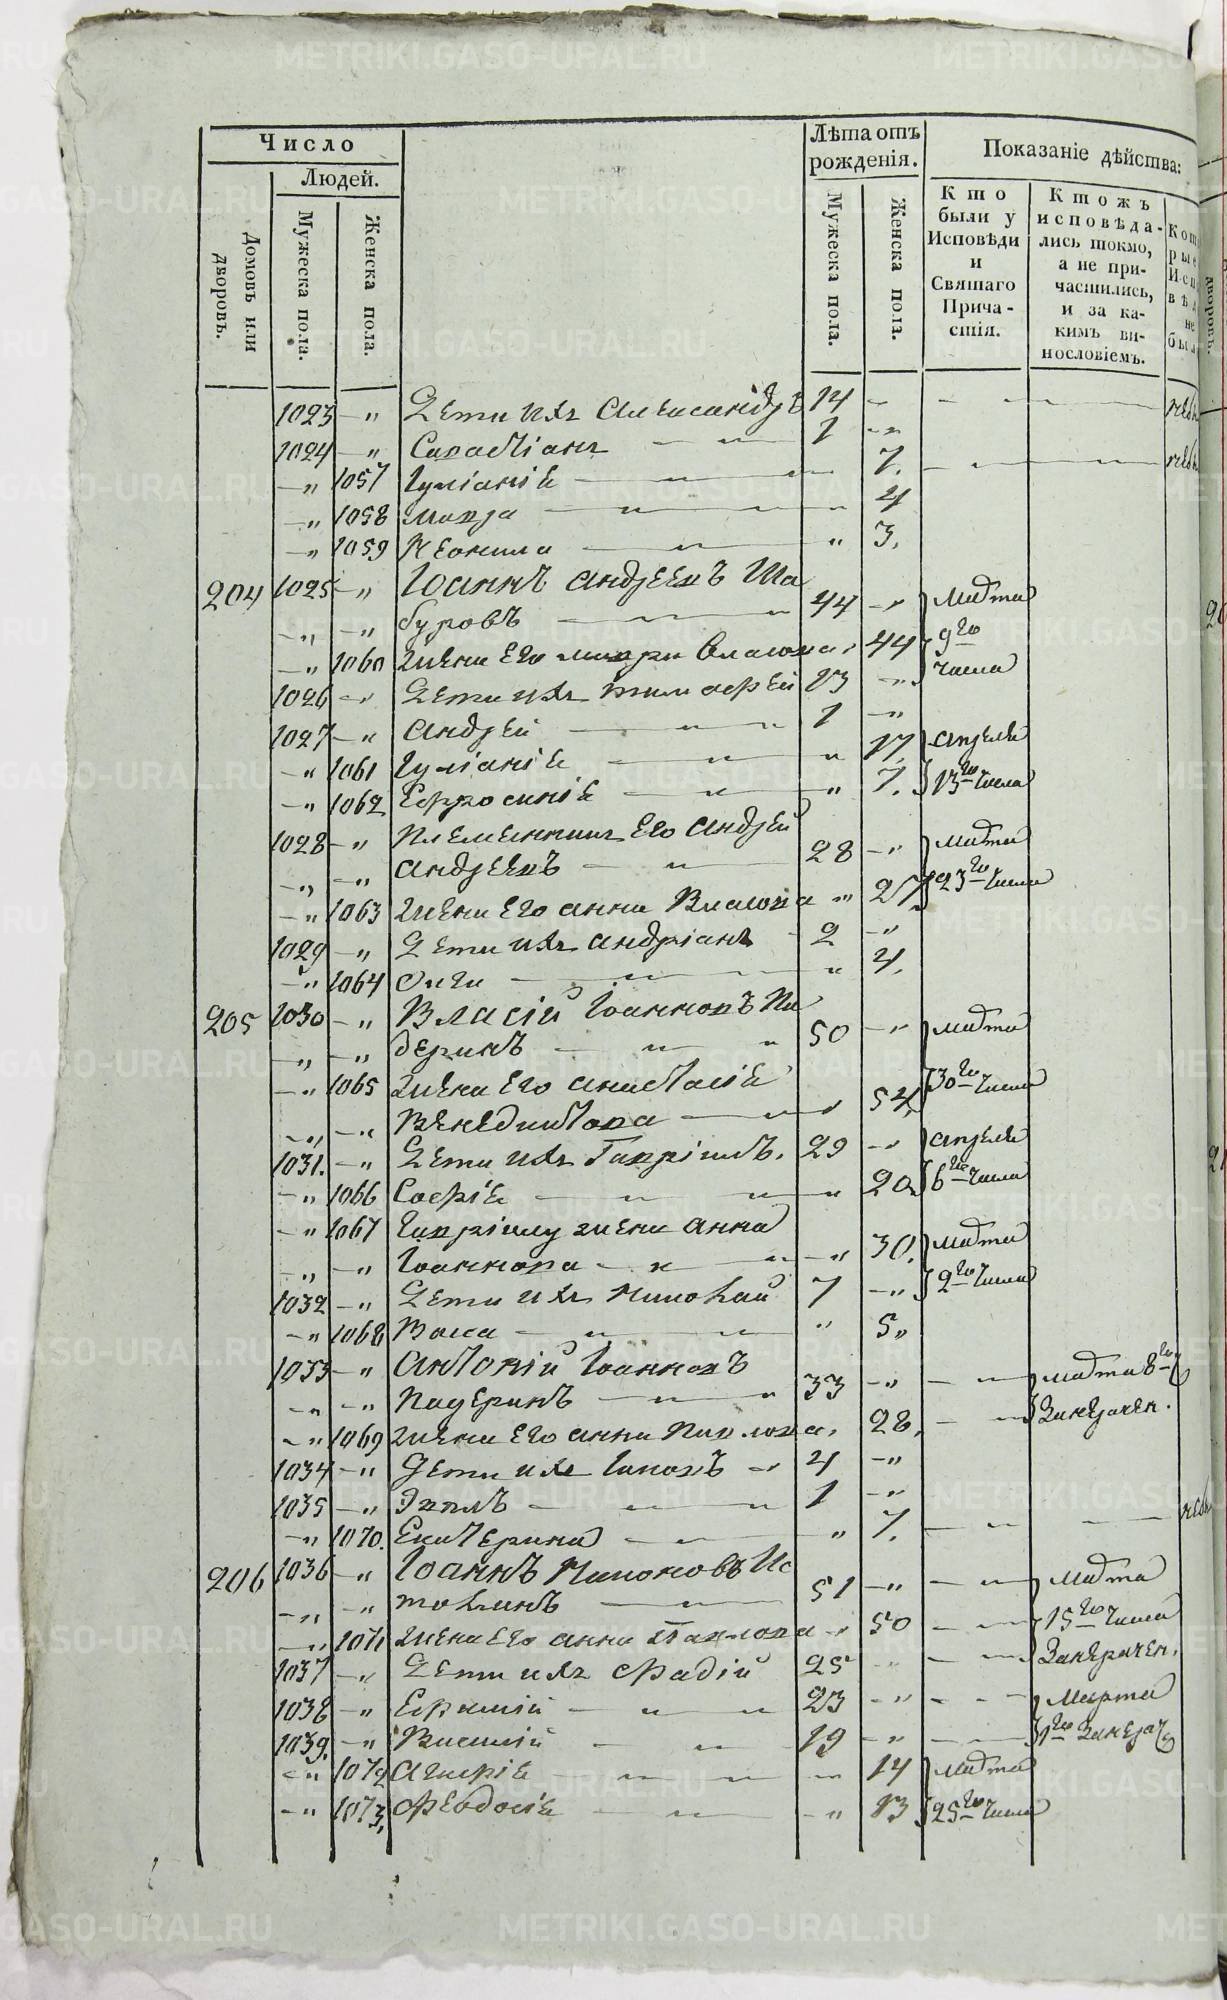 Число
Людей.
Домовъ или дворовъ.
Мужеска пола.
Женска пола.
Лѣта отъ рожденія.
Мужеска пола.
Женска пола.
Показаніе дѣйства:
Кто были у Исповѣди и Святаго Прича-стія.
Ктожъ исповѣда-лись токмо, а не при-частились, и за ка-кимъ ви-нословіемъ.
1023 —„ Дети ихъ Александръ 14 —
1024 —„ Савастіанъ 1 —
—„ 1057 Іуліанія 7.
—„ 1058 Мавра „ 4
—„ 1059 Неонила „ 3.
204 1025 —„ Іоаннъ Андреевъ Ша
—„ —„ буровъ 44 —„ Марта
—„ 1060 Жена его Мавра Власова „ 44 9го
1026 —„ Дети ихъ Тимофей 13 —„ числа
1027 —„ Андрей 1 —„
—„ 1061 Іуліанія „ 17. Апреля
—„ 1062 Евфросинія „ 7. 13го числа
1028 —„ Племянникъ его Андрей
—„ —„ Андреевъ 28 —„ Марта
—„ 1063 Жена его Анна Власова „ 27. 23го числа
1029 —„ Дети ихъ Андріанъ 2 —„
—„ 1064 Олга „ 4.
205 1030 —„ Власій Іоанновъ Па
—„ —„ деринъ 50 —„ Марта
—„ 1065 Жена его Анастасія 30го числа
—„ —„ Венедиктова 54.
1031. —„ Дети ихъ Гавріилъ. 29 —„ Апреля
—„ 1066 Софія „ 20. 6го числа
—„ 1067 Гавріилу жена Анна
—„ —„ Іоаннова —„ 30. Марта
1032 —„ Дети ихъ Николай 7 —„ 2го числа
—„ 1068 Васса „ 5„
1033 —„ Антоній Іоанновъ
—„ —„ Падеринъ 33 —„ Марта 8го
—„ 1069 Жена его Анна Павлова. 28.
1034 —„ Дети ихъ Іаковъ 4 —„
1035 —„ 1 —„
—„ 1070. Екатерина „ 7.
206 1036 —„ Іоаннъ Никоновъ Ис
—„ —„ 51 —„ Марта
—„ 1071 Жена его Анна Павлова „ 50 15го числа
1037 —„ Дети ихъ Фадій 25 „
1038 —„ Ефимій 23 —„ Марта
1039. —„ Василій 19 —„
—„ 1072 Агафія „ 14 Марта
—„ 1073, Феодосія —„ 13 25го числа